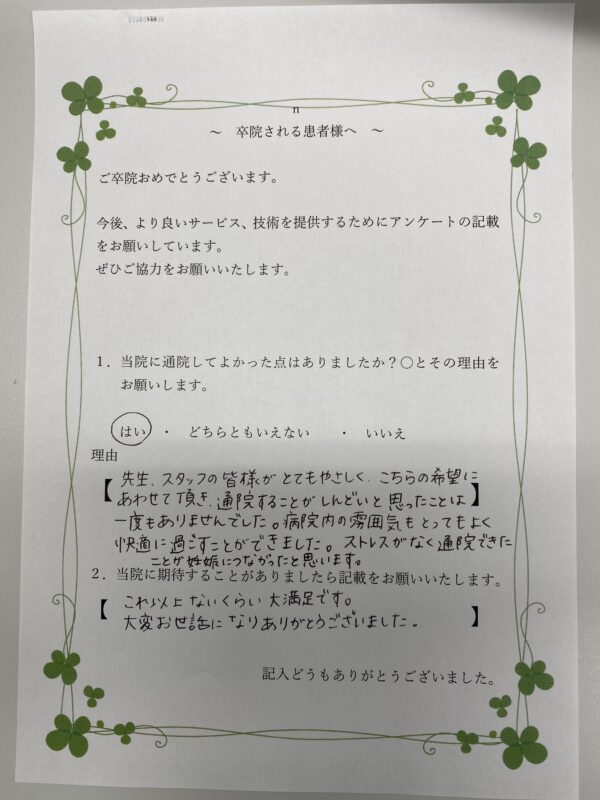 n
～　卒院される患者様へ　～
ご卒院おめでとうございます。
今後、より良いサービス、技術を提供するためにアンケートの記載
をお願いしています。
ぜひご協力をお願いいたします。
1．当院に通院してよかった点はありましたか？〇とその理由を
お願いします。
はい　・　どちらともいえない　・　いいえ
理由
【先生、スタッフの皆様がとてもやさしく、こちらの希望に
あわせて頂き、通院することがしんどいと思ったことは】
一度もありませんでした。病院内の雰囲気もとってもよく
快適に過ごすことができました。ストレスがなく通院できた
ことが妊娠につながったと思います。
2．当院に期待することがありましたら記載をお願いいたします。
【これ以上ないくらい大満足です。
大変お世話になりありがとうございました。】
記入どうもありがとうございました。